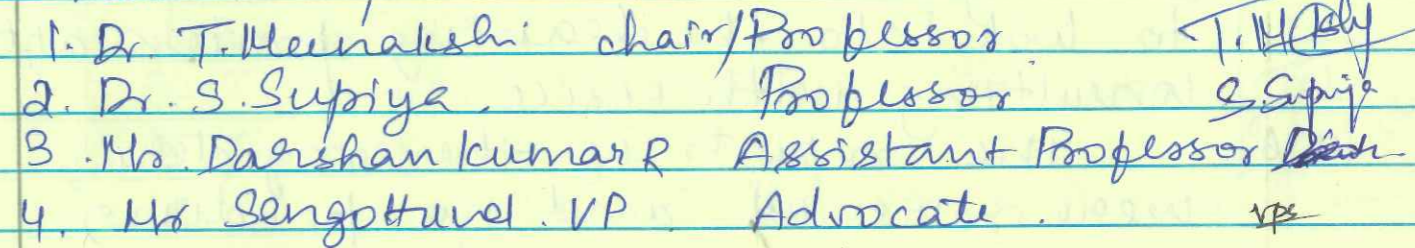 1. Dr. T. Meenakshi chair/Professor
2. Dr. S. Supiya. Professor S. Supiya
3. Mr. Darshan Kumar R Assistant Professor
4. Mr Sengottuvel. VP Advocate. vps